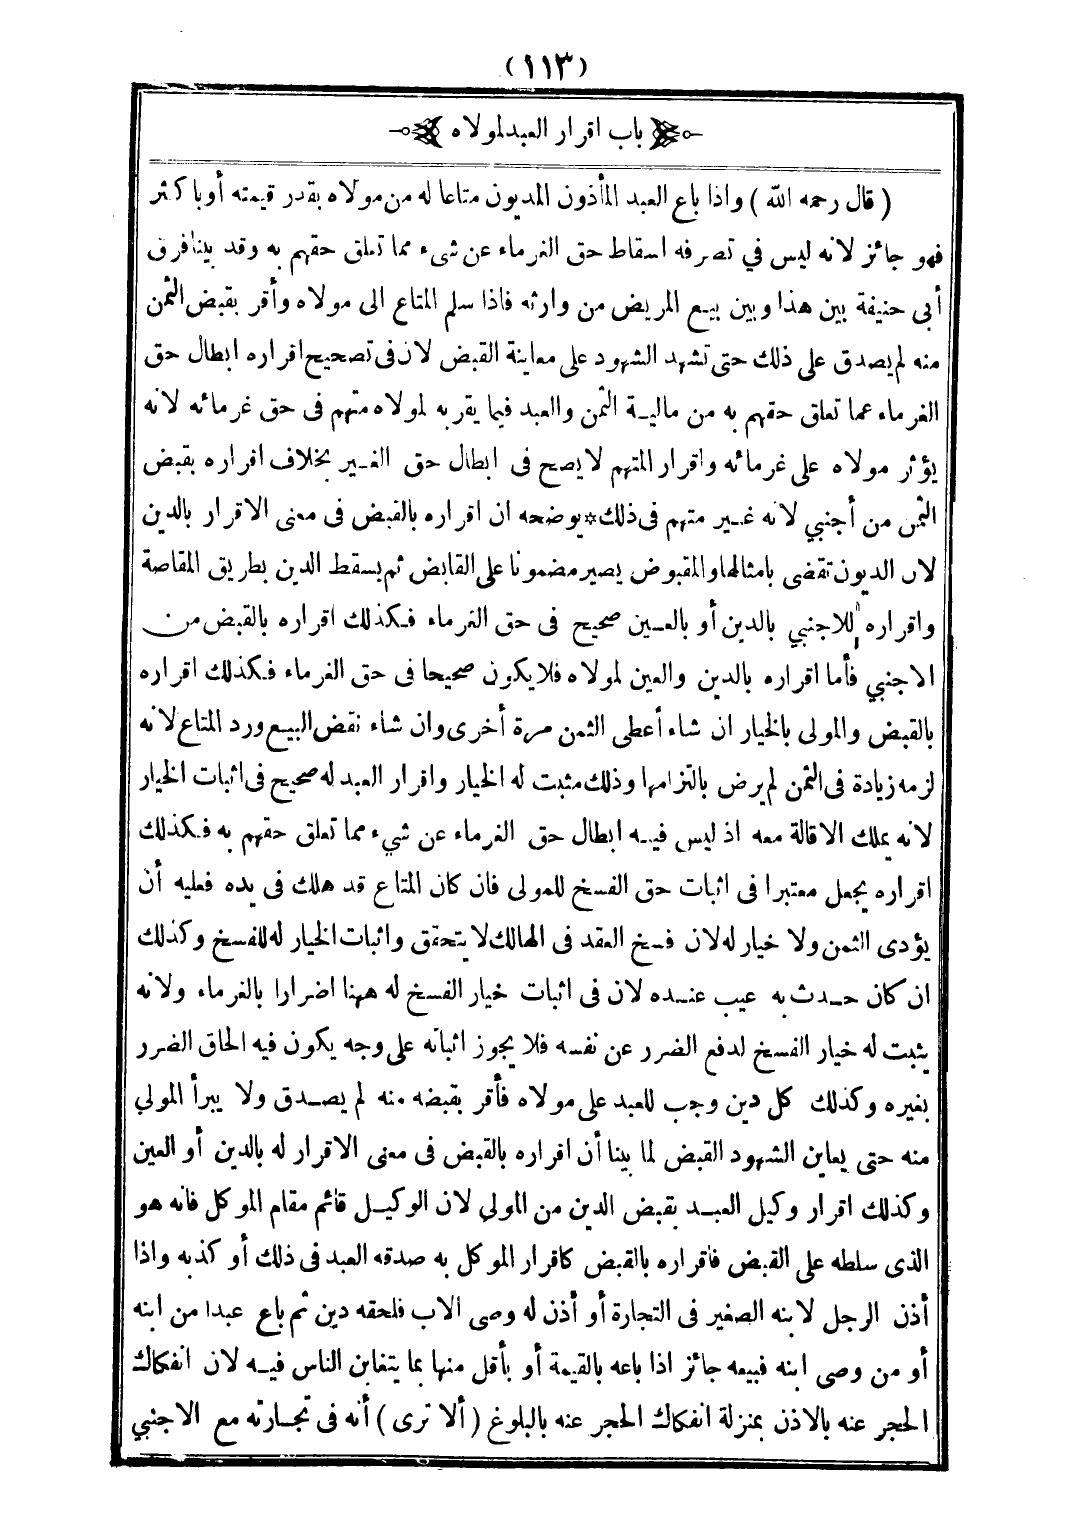 (١١٣)
باب اقرار العبد لمولاه
( قال رحمه الله ) واذا باع العبد المأذون المديون متاعا له من مولاه بقدر قيمته أو با كثر
فهو جائز لانه ليس في تصرفه اسقاط حق الغرماء عن شىء مما تعلق حقهم به وقد بينا فرق
أبى حنيفة بين هذا وبين بيع المريض من وارثه فاذا سلم المتاع الى مولاه وأقر بقبض الثمن
منه لم يصدق على ذلك حتى تشهد الشهود على معاينة القبض لان فى تصحيح اقراره ابطال حق
الغرماء عما تعلق حقهم به من مالية الثمن والعبد فيما يقر به لمولاه متهم فى حق غرمائه لانه
يؤثر مولاه على غرمائه واقرار المتهم لا يصح فى ابطال حق الغير بخلاف اقراره بقبض
الثمن من أجنبي لانه غير متهم فى ذلك*يوضحه ان اقراره بالقبض فى معنى الاقرار بالدين
لان الديون تقضى بامثالها والمقبوض يصير مضمونا على القابض ثم يسقط الدين بطريق المقاصة
واقراره للاجنبي بالدين أو بالعين صحيح فى حق الغرماء فكذلك اقراره بالقبض من
الاجنبي فأما اقراره بالدين والعين لمولاه فلا يكون صحيحا فى حق الغرماء فكذلك اقراره
بالقبض والمولى بالخيار ان شاء أعطى الثمن مرة أخرى وان شاء نقض البيع ورد المتاع لانه
لزمه زيادة فى الثمن لم يرض بالتزامها وذلك مثبت له الخيار واقرار العبد له صحيح فى اثبات الخيار
لانه يملك الاقالة معه اذ ليس فيه ابطال حق الغرماء عن شيء مما تعلق حقهم به فكذلك
اقراره يجعل معتبرا فى اثبات حق الفسخ للمولى فان كان المتاع قد هلك فى يده فعليه أن
يؤدى الثمن ولا خيار له لان فسخ العقد فى الهالك لا يتحقق واثبات الخيار له للفسخ وكذلك
ان كان حدث به عيب عنده لان فى اثبات خيار الفسخ له ههنا اضرارا بالغرماء ولانه
يثبت له خيار الفسخ لدفع الضرر عن نفسه فلا يجوز اثباته على وجه يكون فيه الحاق الضرر
بغيره وكذلك كل دين وجب للعبد على مولاه فأقر بقبضه منه لم يصدق ولا يبرأ المولي
منه حتى يعاين الشهود القبض لما بينا أن اقراره بالقبض فى معنى الاقرار له بالدين أو العين
وكذلك اقرار وكيل العبد بقبض الدين من المولي لان الوكيل قائم مقام الموكل فانه هو
الذى سلطه على القبض فاقراره بالقبض كاقرار الموكل به صدقه العبد فى ذلك أو كذبه واذا
أذن الرجل لابنه الصغير فى التجارة أو أذن له وصى الاب فلحقه دين ثم باع عبدا من ابنه
أو من وصى ابنه فبيعه جائز اذا باعه بالقيمة أو بأقل منها بما يتغابن الناس فيه لان انفكاك
الحجر عنه بالاذن بمنزلة انفكاك الحجر عنه بالبلوغ ( ألا ترى ) أنه فى تجارته مع الاجنبي